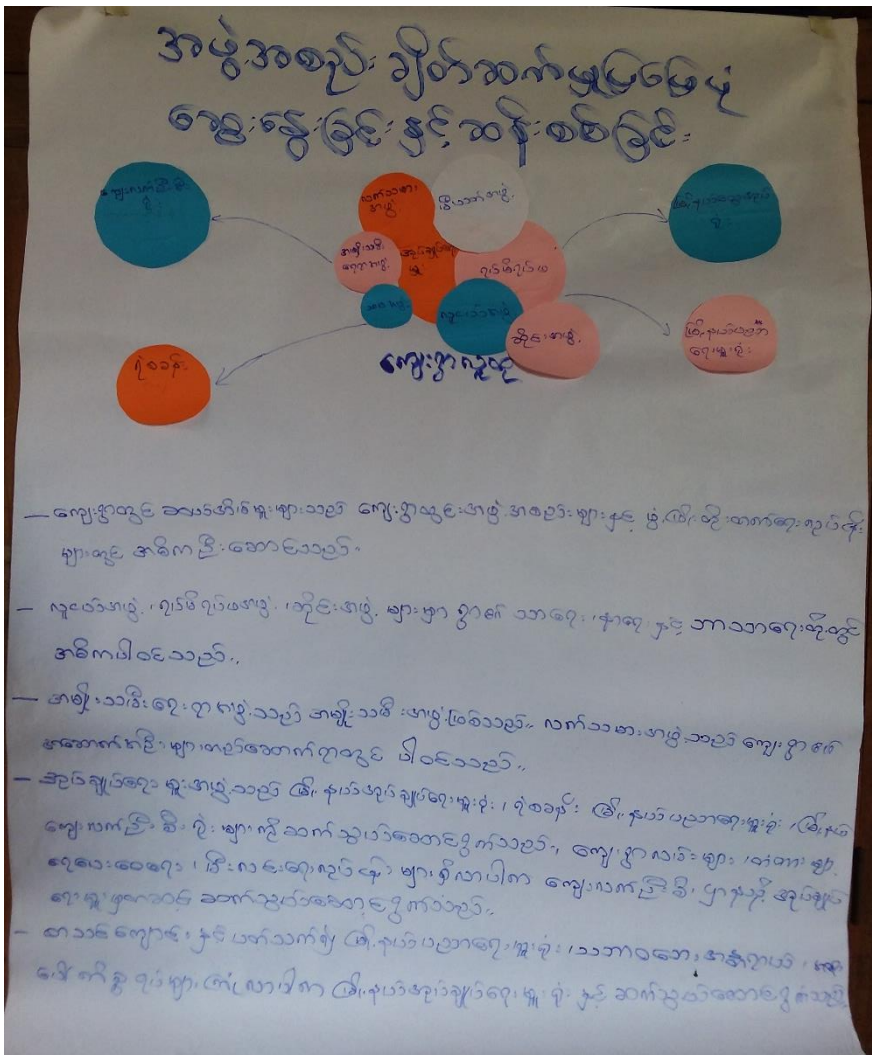 အဖွဲ့အစည်း ချိတ်ဆက်မှုပြမြေပုံ
ဆွေးနွေးခြင်းနှင့် ဆန်းစစ်ခြင်း
ကျေးလက်ဦးစီး
ရုံး
လက်သမား
အဖွဲ့
မီးသတ်အဖွဲ့
မြို့နယ်အုပ်ချုပ်
ရုံး
အမျိုးသမီး
ရေးရာအဖွဲ့
အုပ်ချုပ်ရေး
မှူး
ရပ်မိရပ်ဖ
လူငယ်အဖွဲ့
ဆိုင်းအဖွဲ့
မြို့နယ်ပညာ
ရေးမှူးရုံး
ရဲစခန်း
ကျေးရွာလူထု
– ကျေးရွာတွင် ဆယ်အိမ်မှူးများသည် ကျေးရွာတွင်းအဖွဲ့အစည်းများနှင့် ဖွံ့ဖြိုးတိုးတက်ရေးလုပ်ငန်း
များတွင် အဓိကဦးဆောင်သည်။
– လူငယ်အဖွဲ့၊ ရပ်မိရပ်ဖအဖွဲ့၊ ဆိုင်းအဖွဲ့ များမှာ ရွာ၏ သာရေး၊ နာရေး နှင့် ဘာသာရေးတို့တွင်
အဓိကပါဝင်သည်။
– အမျိုးသမီးရေးရာအဖွဲ့သည် အမျိုးသမီးအဖွဲ့ဖြစ်သည်။ လက်သမားအဖွဲ့သည် ကျေးရွာ၏
အဆောက်အဦးများတည်ဆောက်ရာတွင် ပါဝင်သည်။
– အုပ်ချုပ်ရေးမှူးအဖွဲ့သည် မြို့နယ်အုပ်ချုပ်ရေးမှူးရုံး၊ ရဲစခန်း၊ မြို့နယ်ပညာရေးမှူးရုံး၊ မြို့နယ်
ကျေးလက်ဦးစီးရုံး များကို ဆက်သွယ်ဆောင်ရွက်သည်။ ကျေးရွာလမ်းများ၊ တံတားများ
ရေပေးဝေရေး၊ မီးလင်းရေးလုပ်ငန်း များရှိလာပါက ကျေးလက်ဦးစီးဌာနသို့ အုပ်ချုပ်
ရေးမှူးမှတဆင့် ဆက်သွယ်ဆောင်ရွက်သည်။
– စာသင်ကျောင်းနှင့်ပတ်သက်၍ မြို့နယ်ပညာရေးမှူးရုံး၊ သဘာဝဘေးအန္တရာယ်၊
ကိစ္စရပ်များ ကြုံလာပါက မြို့နယ်အုပ်ချုပ်ရေးမှူးရုံး နှင့် ဆက်သွယ်ဆောင်ရွက်သည်။